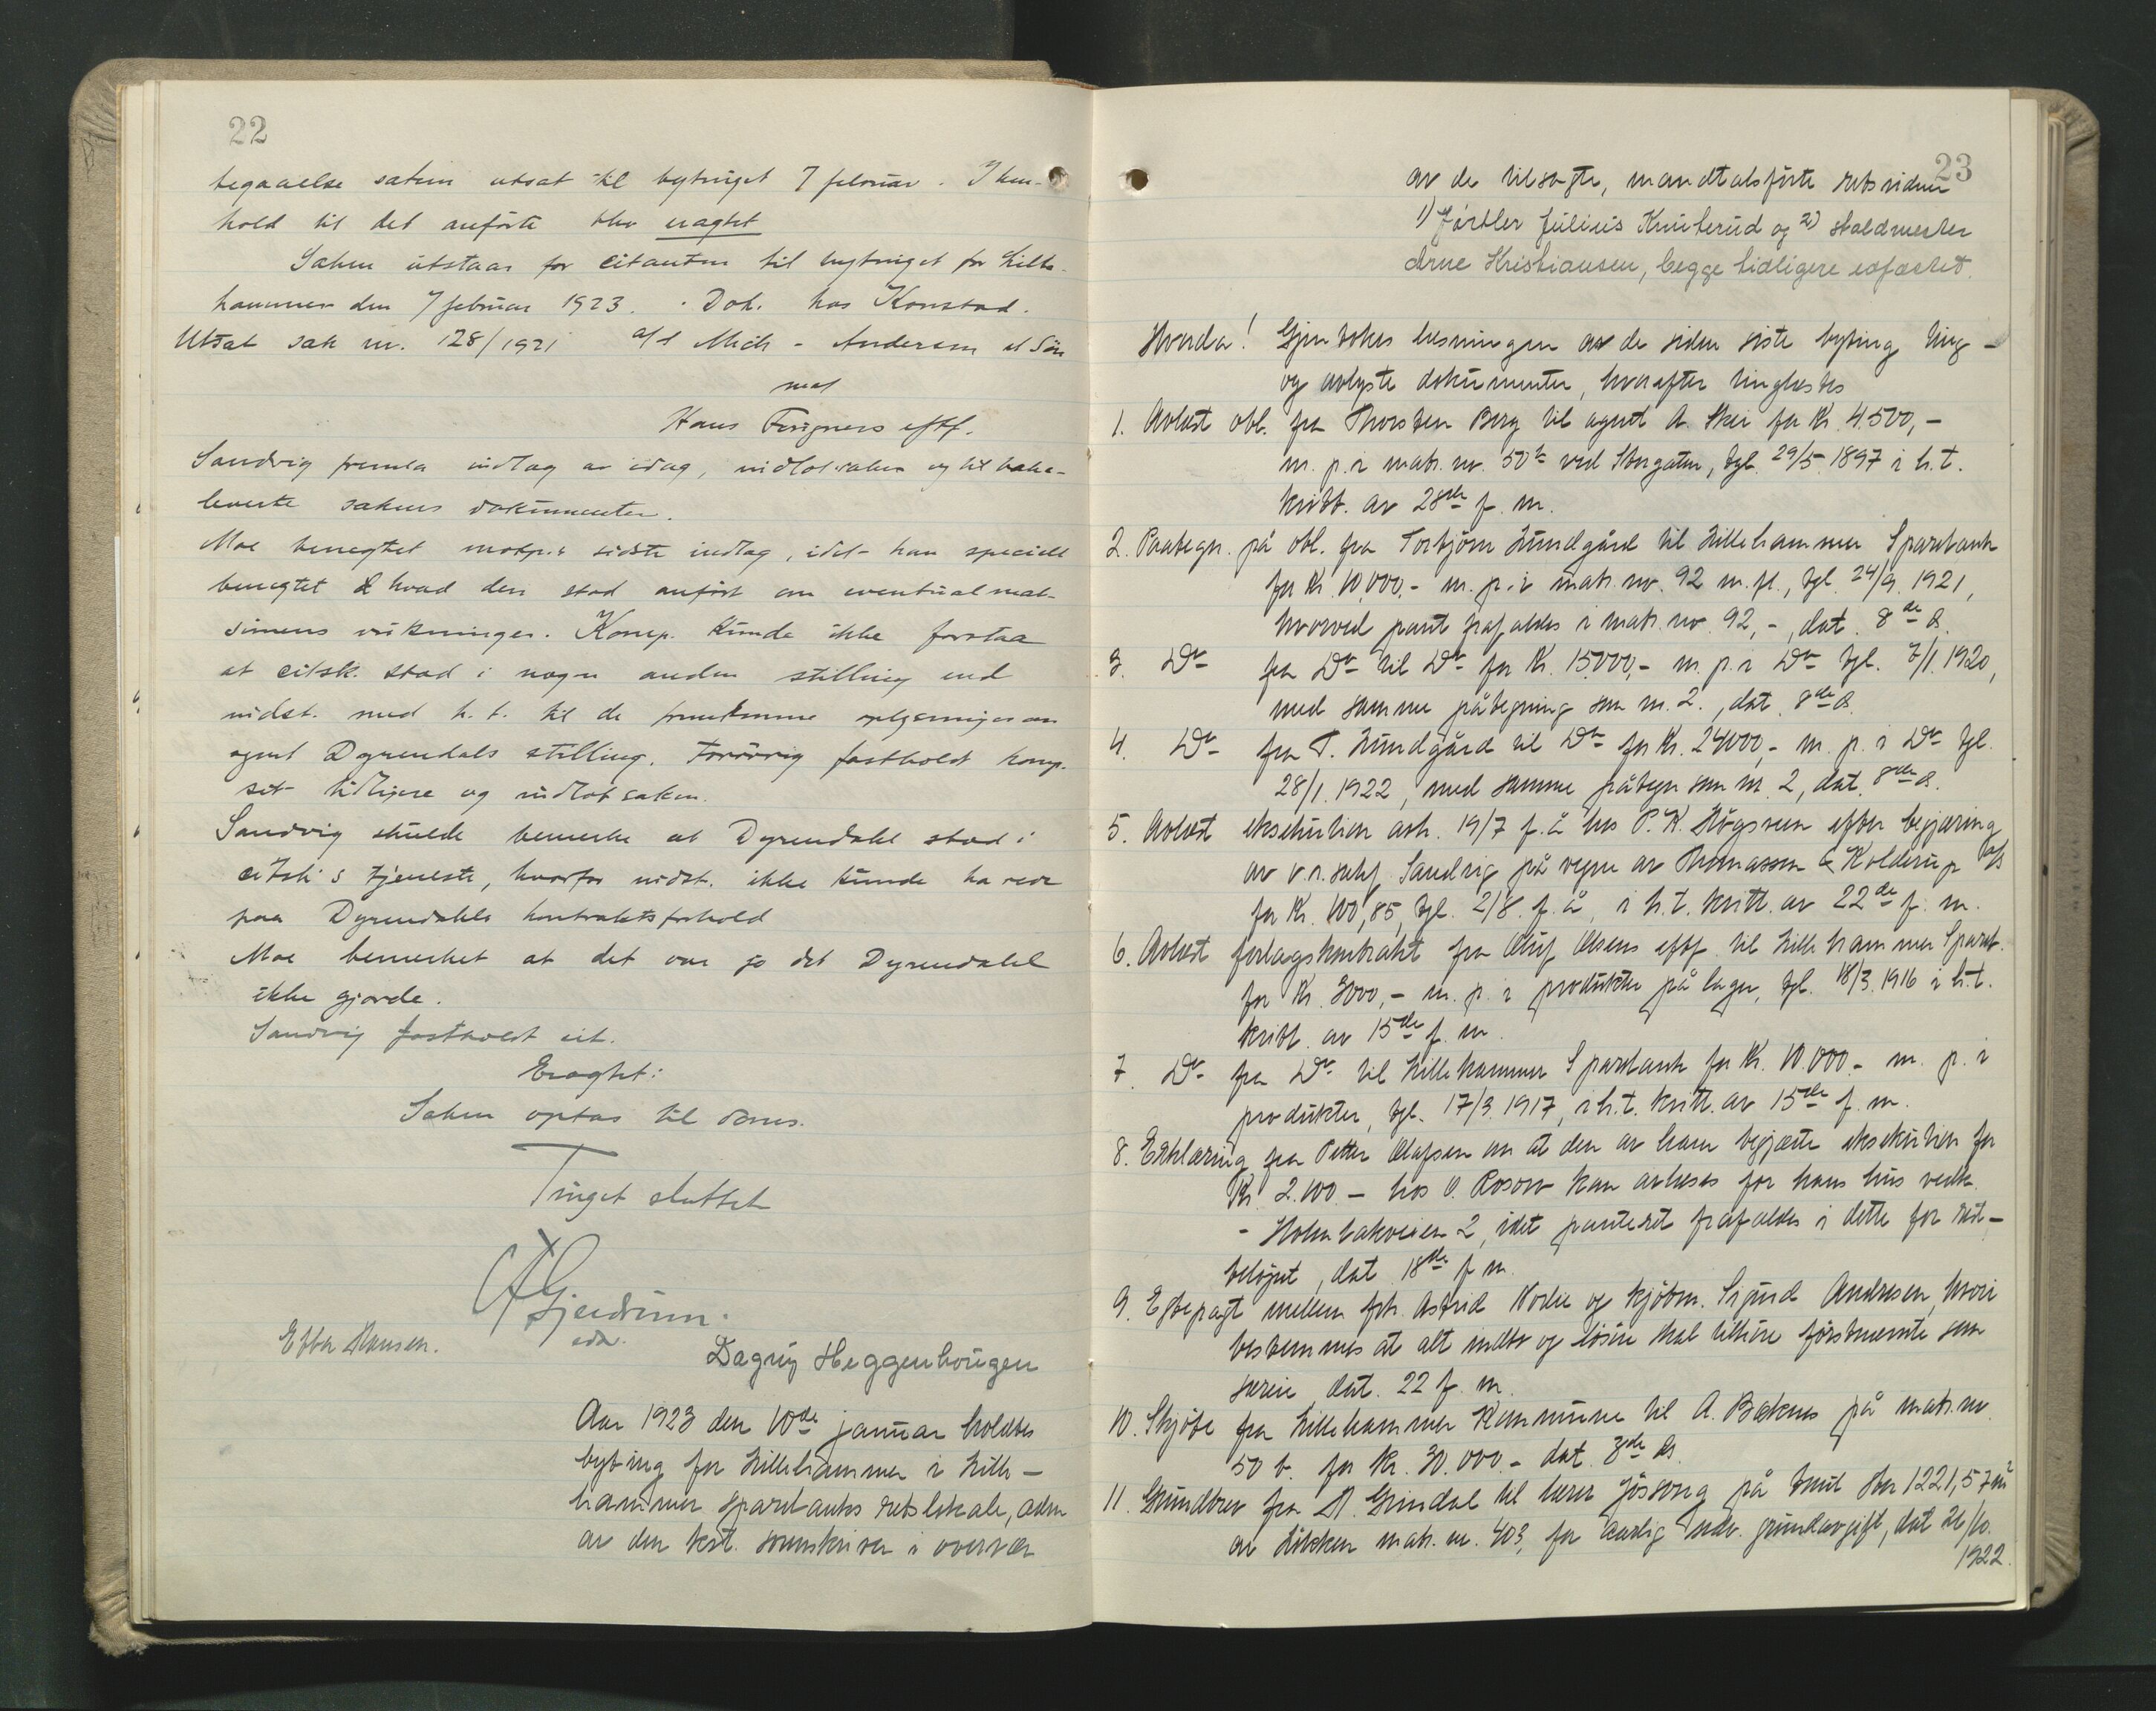 22
begaaelse saken utsat til bytinget 7 februar. I hen-
hold til det anførte blev eragtet
Saken utstaar for citanten til bytinget for Lille-
hammer den 7 februar 1923. Dok. hos Konstad.
Utsat sak nr. 128/1921 a/s Mich. Andersen et Sön
mot
Hans Fougners eftf.
Sandvig fremla indlæg av idag, indlot saken og tilbake-
leverte sakens dokumenter.
Moe benegtet motp.s sidste indlæg, idet han specielt
benegtet hvad der stod anført om eventualmak-
simens virkninger. Komp. kunde ikke forstaa
at citsk. stod i nogen anden stilling end
indst. med h. t. til de fremkomne oplysninger om
agent Dyrendals stilling. Forøvrig fastholdt komp.
sit tidligere og indlot saken.
Sandvig skulde bemerke at Dyrendahl stod i
citsk's tjeneste, hvorfor indst. ikke kunde ha rede
paa Dyrendahls kontraktsforhold
Moe bemerket at det var jo det Dyrendahl
ikke gjorde.
Sandvig fastholdt sit.
Eragtet:
Saken optas til doms.
Tinget sluttet
A Gjerdrum.
edm.
Ebba Hansen.
Dagny Heggenhougen
Aar 1923 den 10de januar holdtes
byting for Lillehammer i Lille-
hammer sparebanks retslokale, adm
av den kst. sorenskriver i overvær
23
av de tilsagte, mandtalsførte retsvidner
1) Gjørtler Julius Knuterud og 2) staldmester
Arne Kristiansen, begge tidligere edfæstet.
Hvorda! Gjentokes læsningen av de siden siste byting ting-
og avlyste dokumenter, hvorefter tinglæstes
1. Avlæst obl. fra Thorsten Berg til agent A. Skei for Kr. 4.500,-
m. p. i matr. nr. 50b ved Storgaten, tgl. 29/5 1897 i h. t.
kvitt. av 28de f. m.
2. Paategn. på obl. fra Torbjørn Lundgård til Lillehammer Sparebank
for Kr. 10.000.- m. p. i matr. nr. 92 m. fl., tgl. 24/9 1921,
hvorved pant frafaldes i matr. nr. 92,-, dat. 8de ds.
3. Do fra Do til Do for Kr. 15000,- m. p. i Do tgl. 7/1 1920,
med samme påtegning som nr. 2., dat. 8de ds.
4. Do fra T. Lundgård til Do for Kr. 24000,- m. p. i Do tgl.
28/1. 1922, med samme påtegn som nr. 2, dat. 8de ds.
5. Avlæst eksekution avh. 19/7 f. å hos P. K. Høgsveen efter begjæring
av o.r.sakf. Sandvig på vegne av Thomassen & Kolderup a/s
for Kr. 100,85, tgl. 2/8. f. å, i h. t. kvitt. av 22de f. m.
6. Avlæst forlagskontrakt fra Oluf Olsens eftf. til Lillehammer Spareb.
for Kr. 3000,- m. p. i produkter på lager, tgl. 18/3 1916 i h. t.
kvitt. av 15de f. m.
7. Do fra Do til Lillehammer Sparebank for Kr. 10.000.- m. p. i
produkter, tgl. 17/3 1917, i h. t. kvitt. av 15de f. m.
8. Erklæring fra Petter Olafsen om at den av ham begjærte eksekution for
Kr. 2.100 - hos O. Rosow kan avlæses for hans hus vedk.
- Holmbakveien 2, idet panteret frafaldes i dette for rest-
beløpet, dat 18de f m.
9. Egtepagt mellem frk. Astrid Nordie og kjøbm. Sigurd Andresen, hvori
bestemmes at alt indbo og løsøre skal tilhøre førstnævnte som
særeie, dat. 22 f. m.
10. Skjøte fra Lillehammer Kommune til A. Bæknes på matr. nr.
50 b. for kr. 30.000.- dat. 3de ds.
11. Grundbrev fra A. Grindal til lærer Jøssong på tomt stor 1221,57 m²
av Løkken matr. nr. 403, for aarlig grundavgift, dat 26/10.
1922.